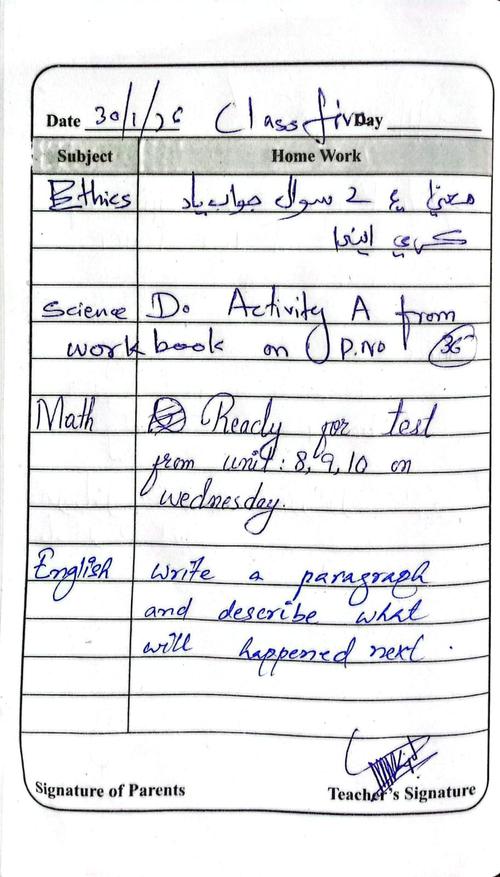 Date 30/1/26 Class five Day
Subject Home Work
Ethics معنيٰ ۽ 2 سوال جواب ياد
ڪري ايندا
Science Do Activity A from
work book on P.No 36
Math Ready for test
from unit: 8, 9, 10 on
wednesday.
English write a paragraph
and describe what
will happened next.
Signature of Parents Teacher's Signature